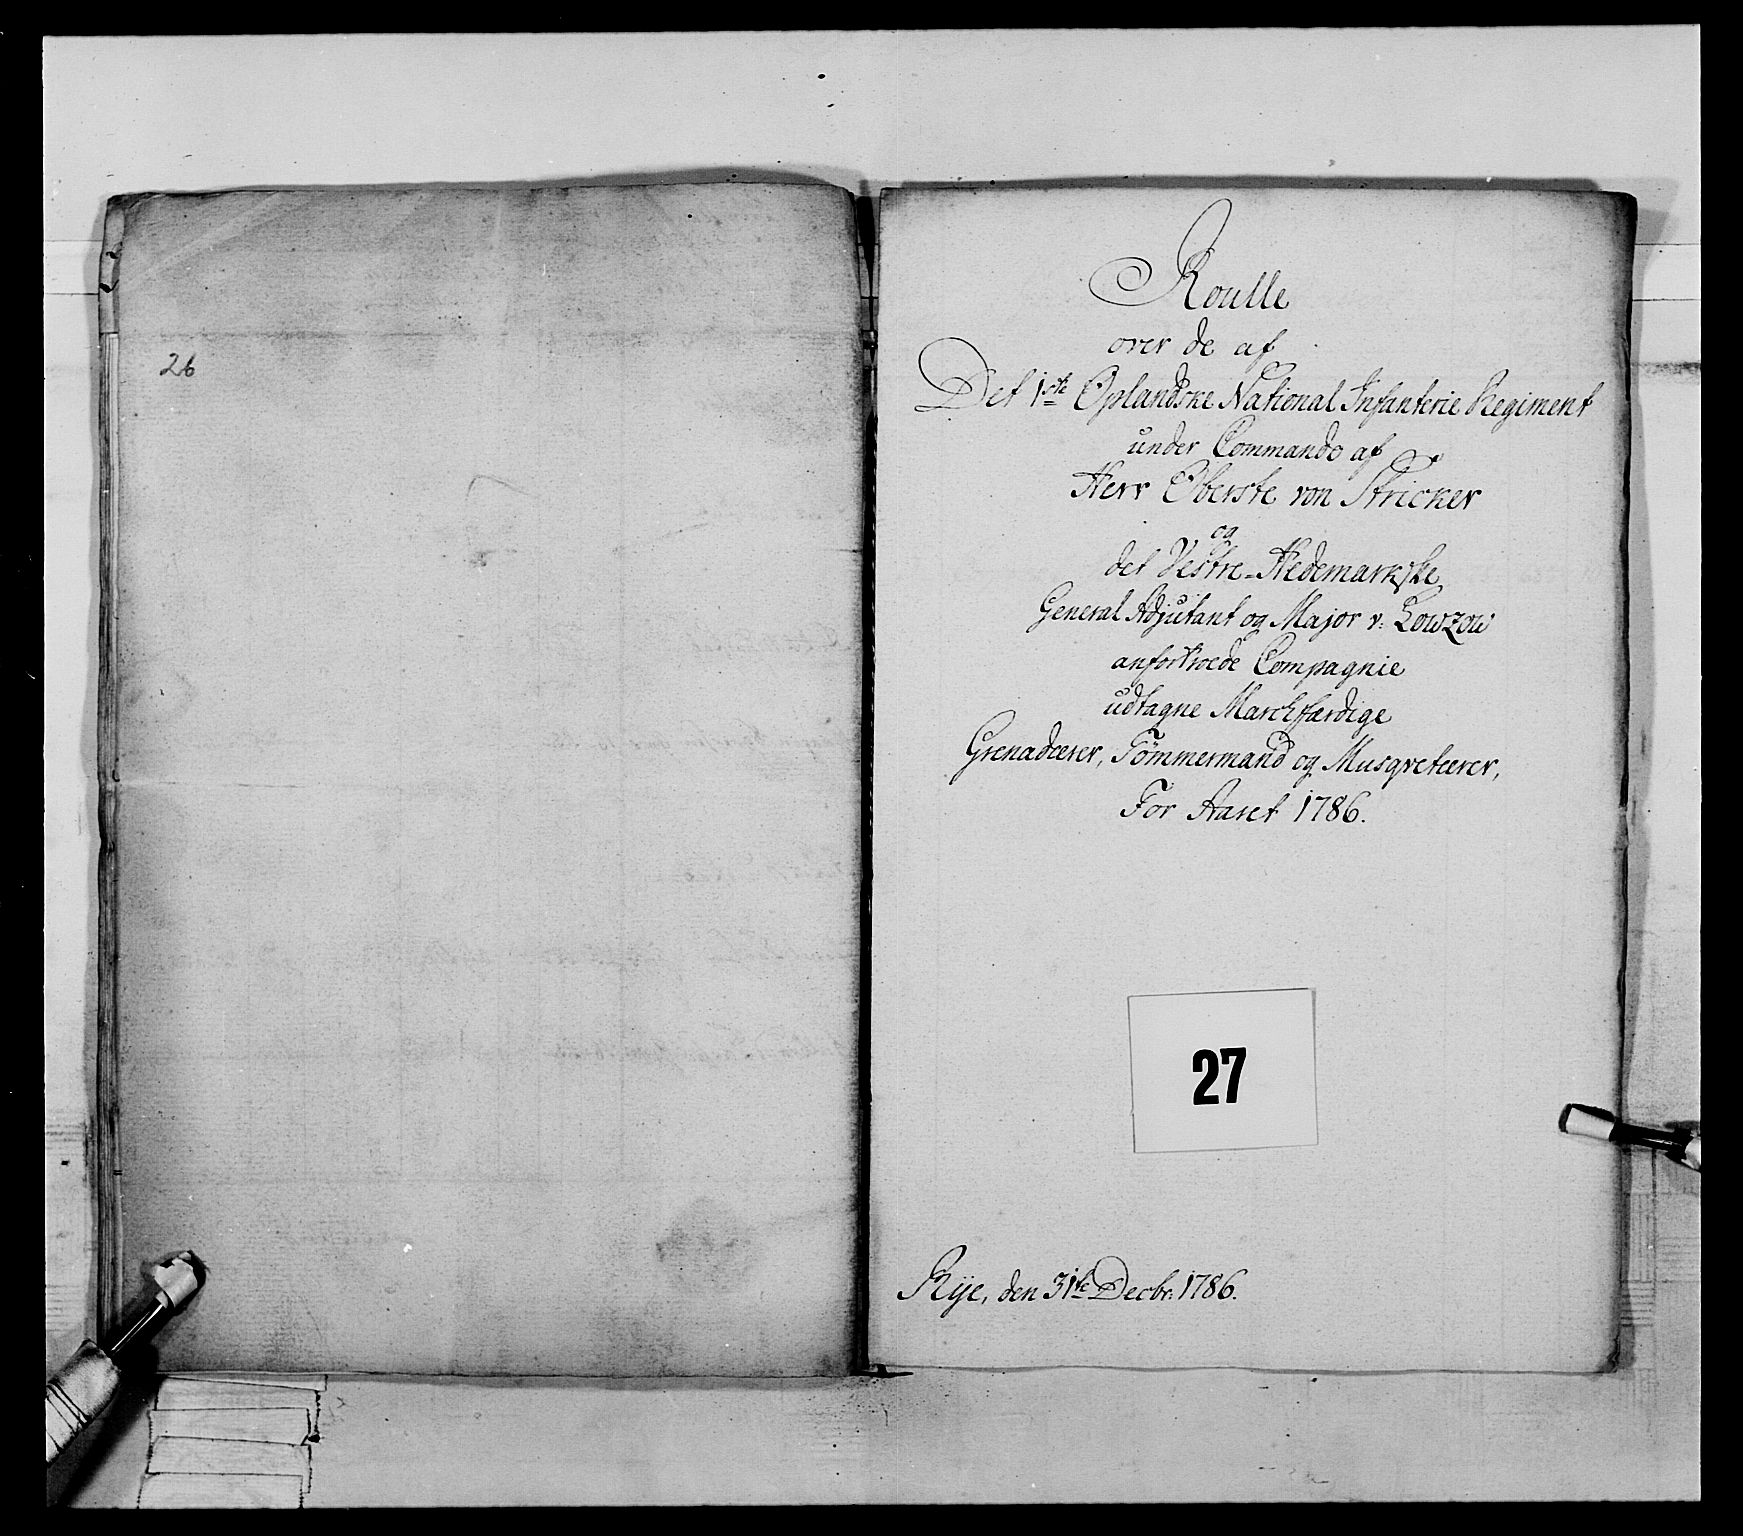 26
Roulle
over de af
Det 1ste Oplandske National Infanterie Regiment
under Commando af
Herr Oberste von Stricker
og
det Vestre-Hedemarkske
General Adjutant og Major v: Lowzow
anfortroede Compagnie
udtagne Marchfærdige
Grenadeerer, Tømmermænd og Musqveteerer,
For Aaret 1786.
27
Rÿe, den 31te Decbr: 1786.